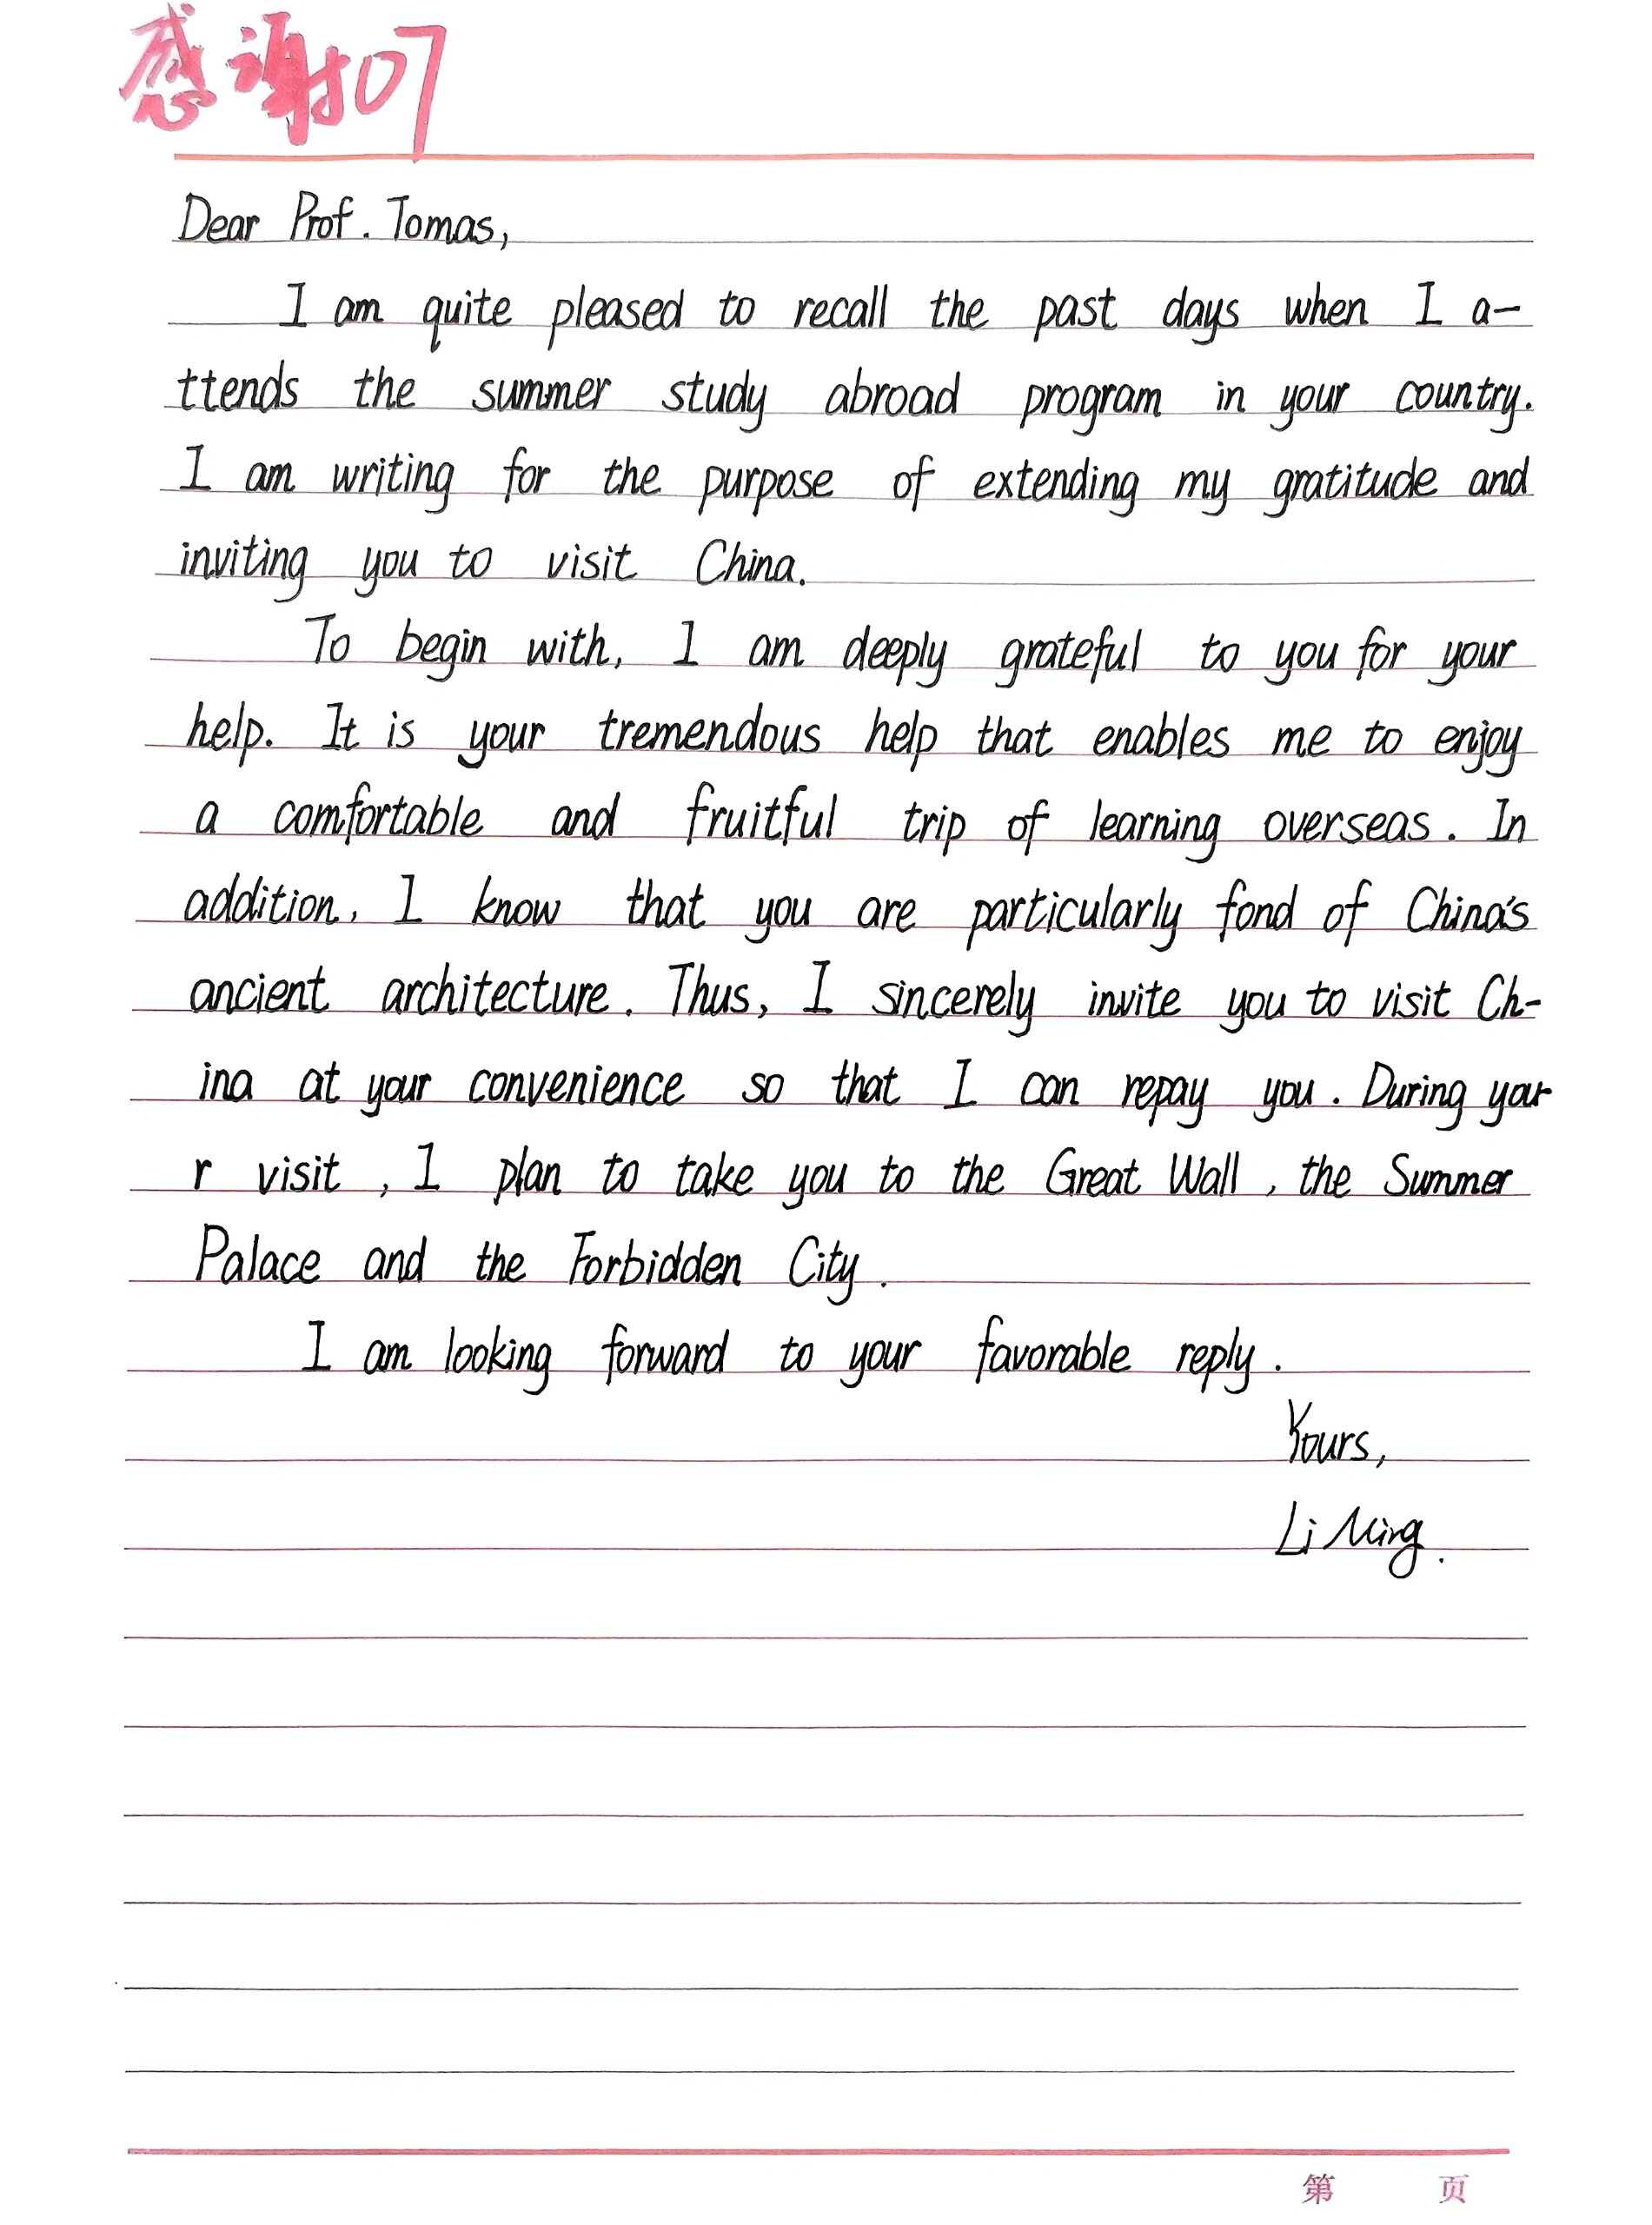 感谢07
Dear Prof. Tomas,
I am quite pleased to recall the past days when I a-
ttends the summer study abroad program in your country.
I am writing for the purpose of extending my gratitude and
inviting you to visit China.
To begin with, I am deeply grateful to you for your
help. It is your tremendous help that enables me to enjoy
a comfortable and fruitful trip of learning overseas. In
addition, I know that you are particularly fond of China's
ancient architecture. Thus, I sincerely invite you to visit Ch-
ina at your convenience so that I can repay you. During you-
r visit, I plan to take you to the Great Wall, the Summer
Palace and the Forbidden City.
I am looking forward to your favorable reply.
Yours,
Li Ming.
第 页